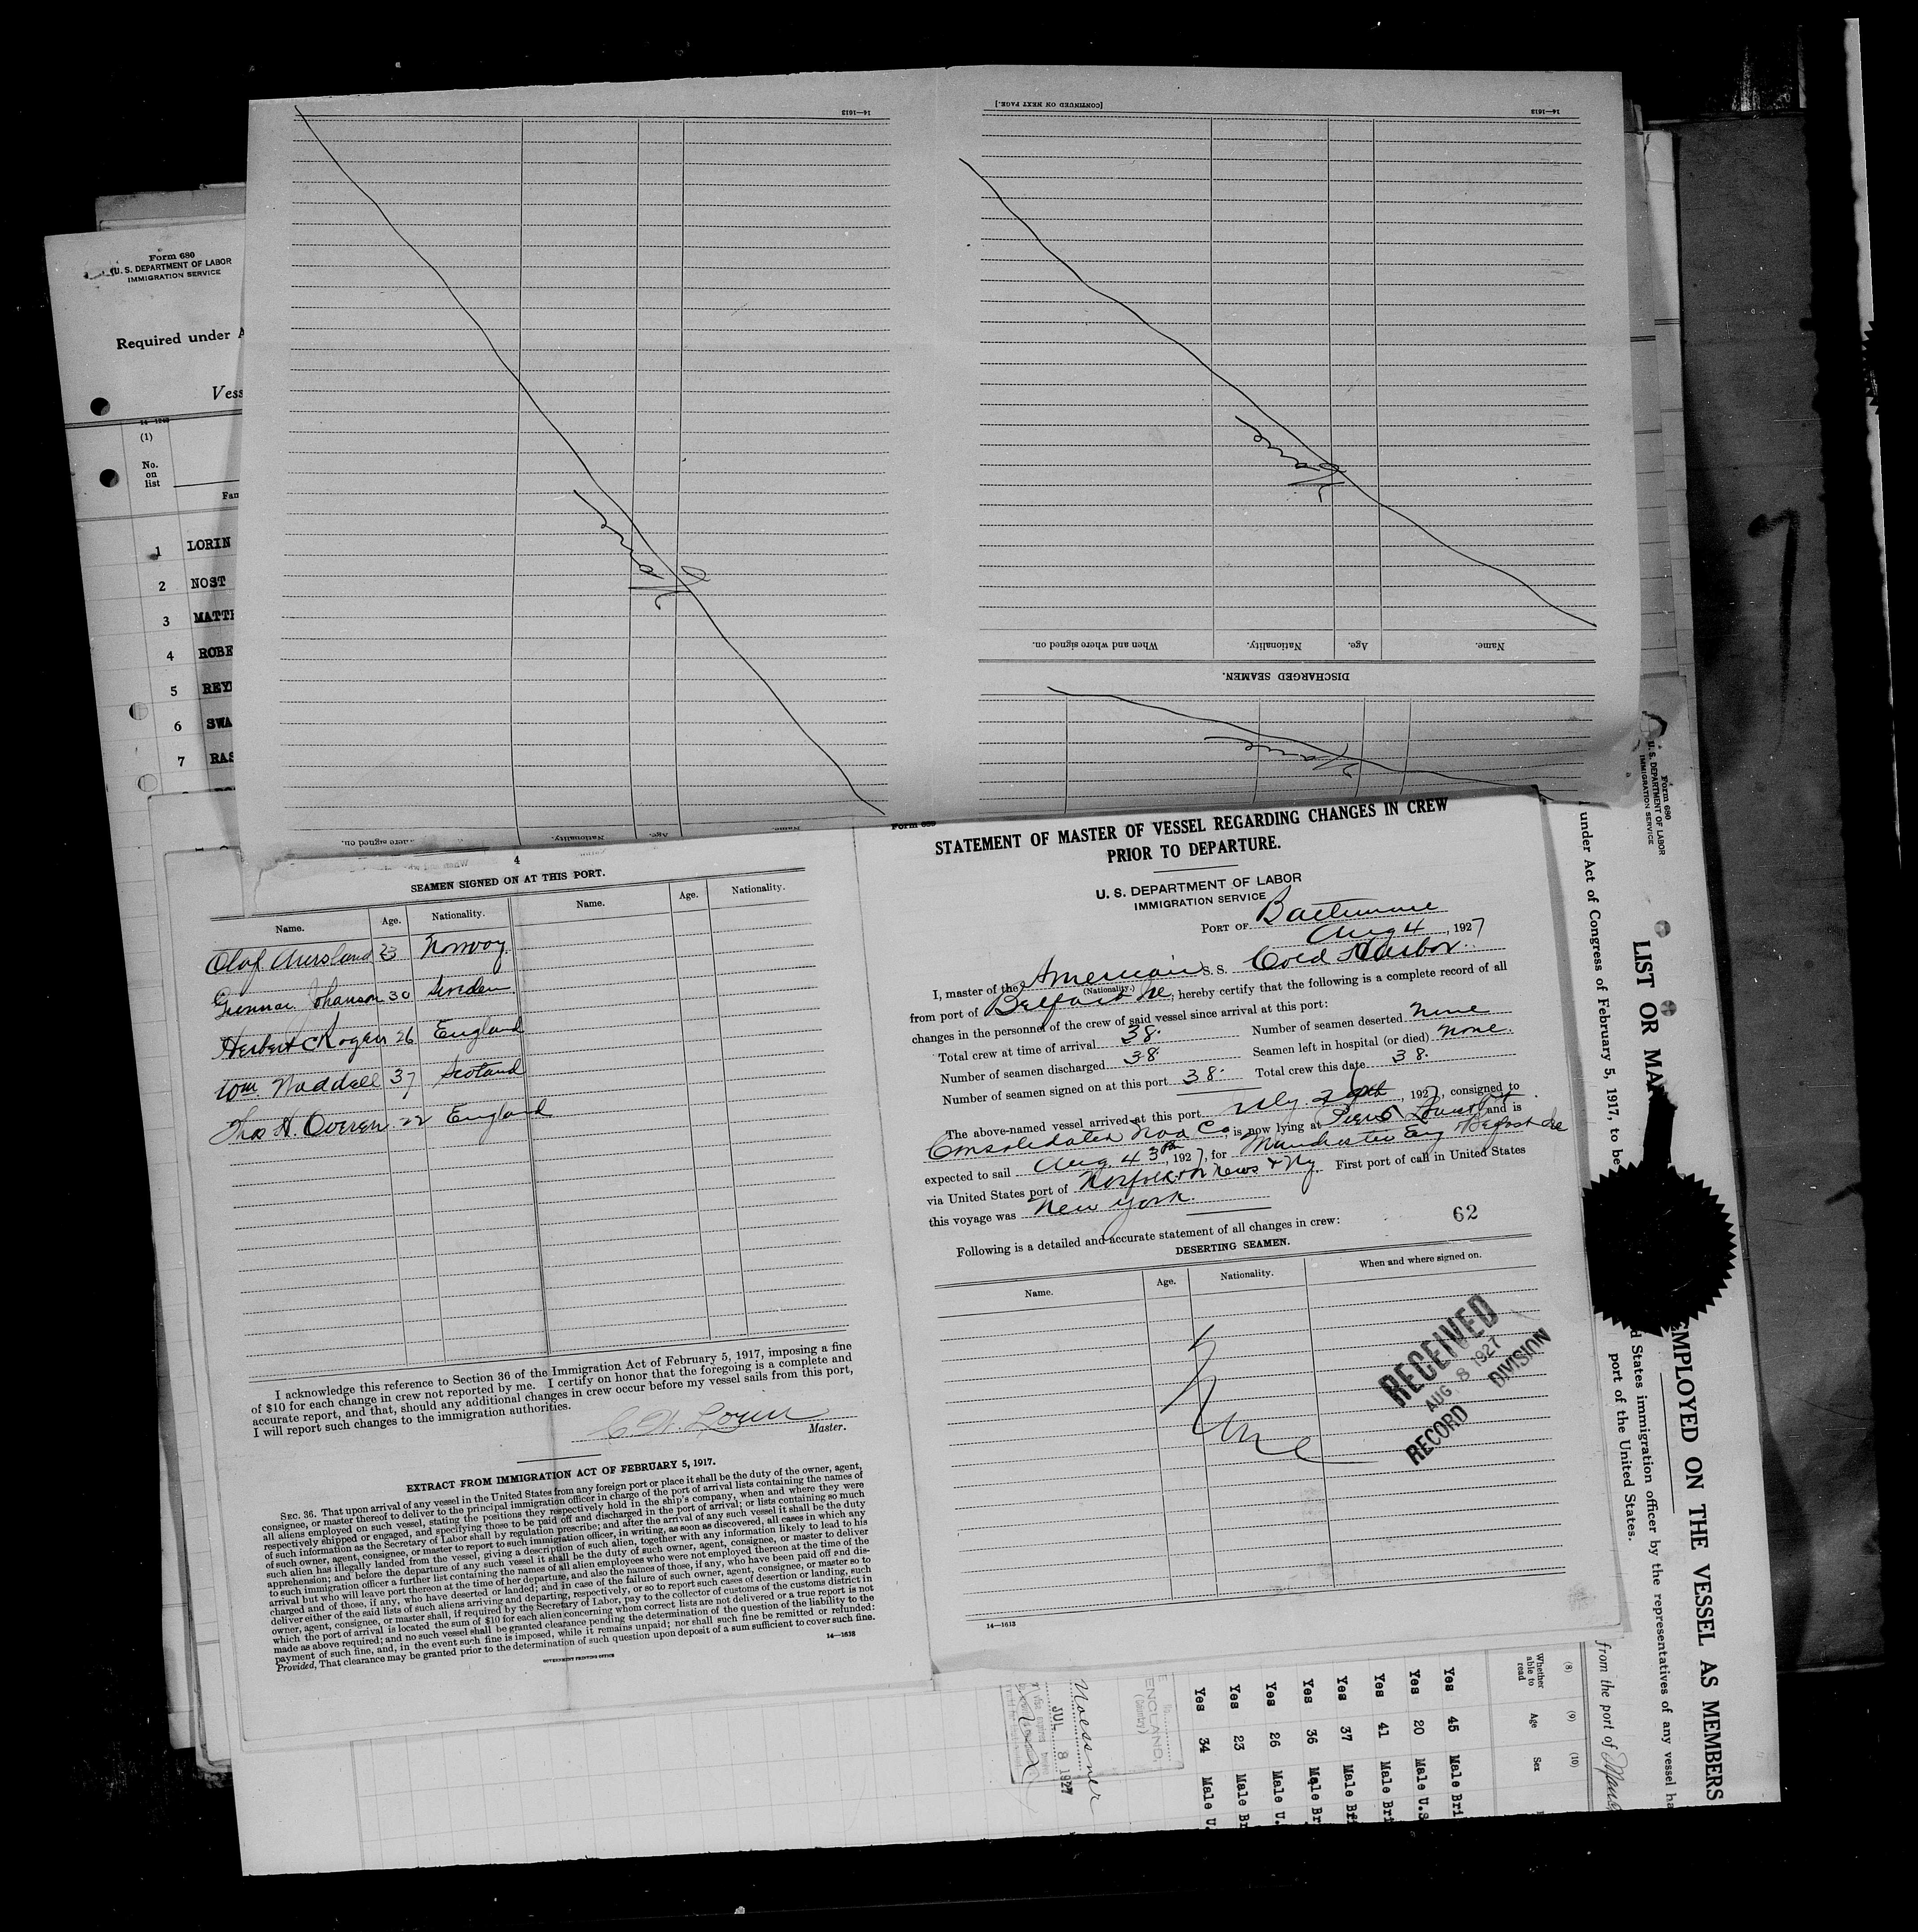 14—1613
[CONTINUED ON NEXT PAGE.]
14—1613
None
None
When and where signed on.
Nationality.
Age.
Name.
DISCHARGED SEAMEN.
None
Name.
Nationality.
Age.
Form 680
U. S. DEPARTMENT OF LABOR
IMMIGRATION SERVICE
Required under A
Vess
14—1240
(1)
No.
on
list
Fam
1 LORIN
2 NOST
3 MATTH
4 ROBE
5
6 SWA
7 RAS
4
SEAMEN SIGNED ON AT THIS PORT.
Name. Age. Nationality. Name. Age. Nationality.
Olof 23 Norway
Gunnar Johanson 30 Sweden
Herbert C Rogers 26 England
Wm. Waddell 37 Scotland
Thos H. Overen 22 England
I acknowledge this reference to Section 36 of the Immigration Act of February 5, 1917, imposing a fine
of $10 for each change in crew not reported by me. I certify on honor that the foregoing is a complete and
accurate report, and that, should any additional changes in crew occur before my vessel sails from this port,
I will report such changes to the immigration authorities.
C. W. Loren
Master.
EXTRACT FROM IMMIGRATION ACT OF FEBRUARY 5, 1917.
SEC. 36. That upon arrival of any vessel in the United States from any foreign port or place it shall be the duty of the owner, agent,
consignee, or master thereof to deliver to the principal immigration officer in charge of the port of arrival lists containing the names of
all aliens employed on such vessel, stating the positions they respectively hold in the ship's company, when and where they were
respectively shipped or engaged, and specifying those to be paid off and discharged in the port of arrival; or lists containing so much
of such information as the Secretary of Labor shall by regulation prescribe; and after the arrival of any such vessel it shall be the duty
of such owner, agent, consignee, or master to report to such immigration officer, in writing, as soon as discovered, all cases in which any
such alien has illegally landed from the vessel, giving a description of such alien, together with any information likely to lead to his
apprehension; and before the departure of any such vessel it shall be the duty of such owner, agent, consignee, or master to deliver
to such immigration officer a further list containing the names of all alien employees who were not employed thereon at the time of the
arrival but who will leave port thereon at the time of her departure, and also the names of those, if any, who have been paid off and dis-
charged and of those, if any, who have deserted or landed; and in case of the failure of such owner, agent, consignee, or master so to
deliver either of the said lists of such aliens arriving and departing, respectively, or so to report such cases of desertion or landing, such
owner, agent, consignee, or master shall, if required by the Secretary of Labor, pay to the collector of customs of the customs district in
which the port of arrival is located the sum of $10 for each alien concerning whom correct lists are not delivered or a true report is not
made as above required; and no such vessel shall be granted clearance pending the determination of the question of the liability to the
payment of such fine, and, in the event such fine is imposed, while it remains unpaid; nor shall such fine be remitted or refunded:
Provided, That clearance may be granted prior to the determination of such question upon deposit of a sum sufficient to cover such fine.
14—1613
GOVERNMENT PRINTING OFFICE
Form 689
STATEMENT OF MASTER OF VESSEL REGARDING CHANGES IN CREW
PRIOR TO DEPARTURE.
U. S. DEPARTMENT OF LABOR
IMMIGRATION SERVICE
PORT OF Baltimore
Aug 4, 1927
I, master of the American S. S. Cold Harbor
(Nationality.)
from port of Belfast Ire, hereby certify that the following is a complete record of all
changes in the personnel of the crew of said vessel since arrival at this port:
Total crew at time of arrival 38. Number of seamen deserted none
Number of seamen discharged 38 Seamen left in hospital (or died) none.
Number of seamen signed on at this port 38. Total crew this date 38.
The above-named vessel arrived at this port July 1927, consigned to
Consolidated Nav Co, is now lying at Pier 5 and is
expected to sail Aug. 4 3 PM, 1927, for Manchester Eng Belfast Ire
via United States port of Norfolk N News & Ny First port of call in United States
this voyage was New York.
Following is a detailed and accurate statement of all changes in crew:
62
DESERTING SEAMEN.
Name. Age. Nationality. When and where signed on.
None
RECEIVED
AUG 8 1927
RECORD DIVISION
14—1613
Form 680
U. S. DEPARTMENT OF LABOR
IMMIGRATION SERVICE
LIST OR MA
EMPLOYED ON THE VESSEL AS MEMBERS
under Act of Congress of February 5, 1917, to be
d States immigration officer by the representatives of any vessel ha
port of the United States.
from the port of
(8)
Whether
able to
read
(9)
Age
(10)
Sex
Yes 45 Male Bri
Yes 20 Male U.S
Yes 41 Male Bri
Yes 37 Male Bri
Yes 36 Male Br
Yes 26 Male U.
Yes 23 Male Br
Yes 34 Male U.
ENGLAND
(Country)
Noessner
JUL 8 1927